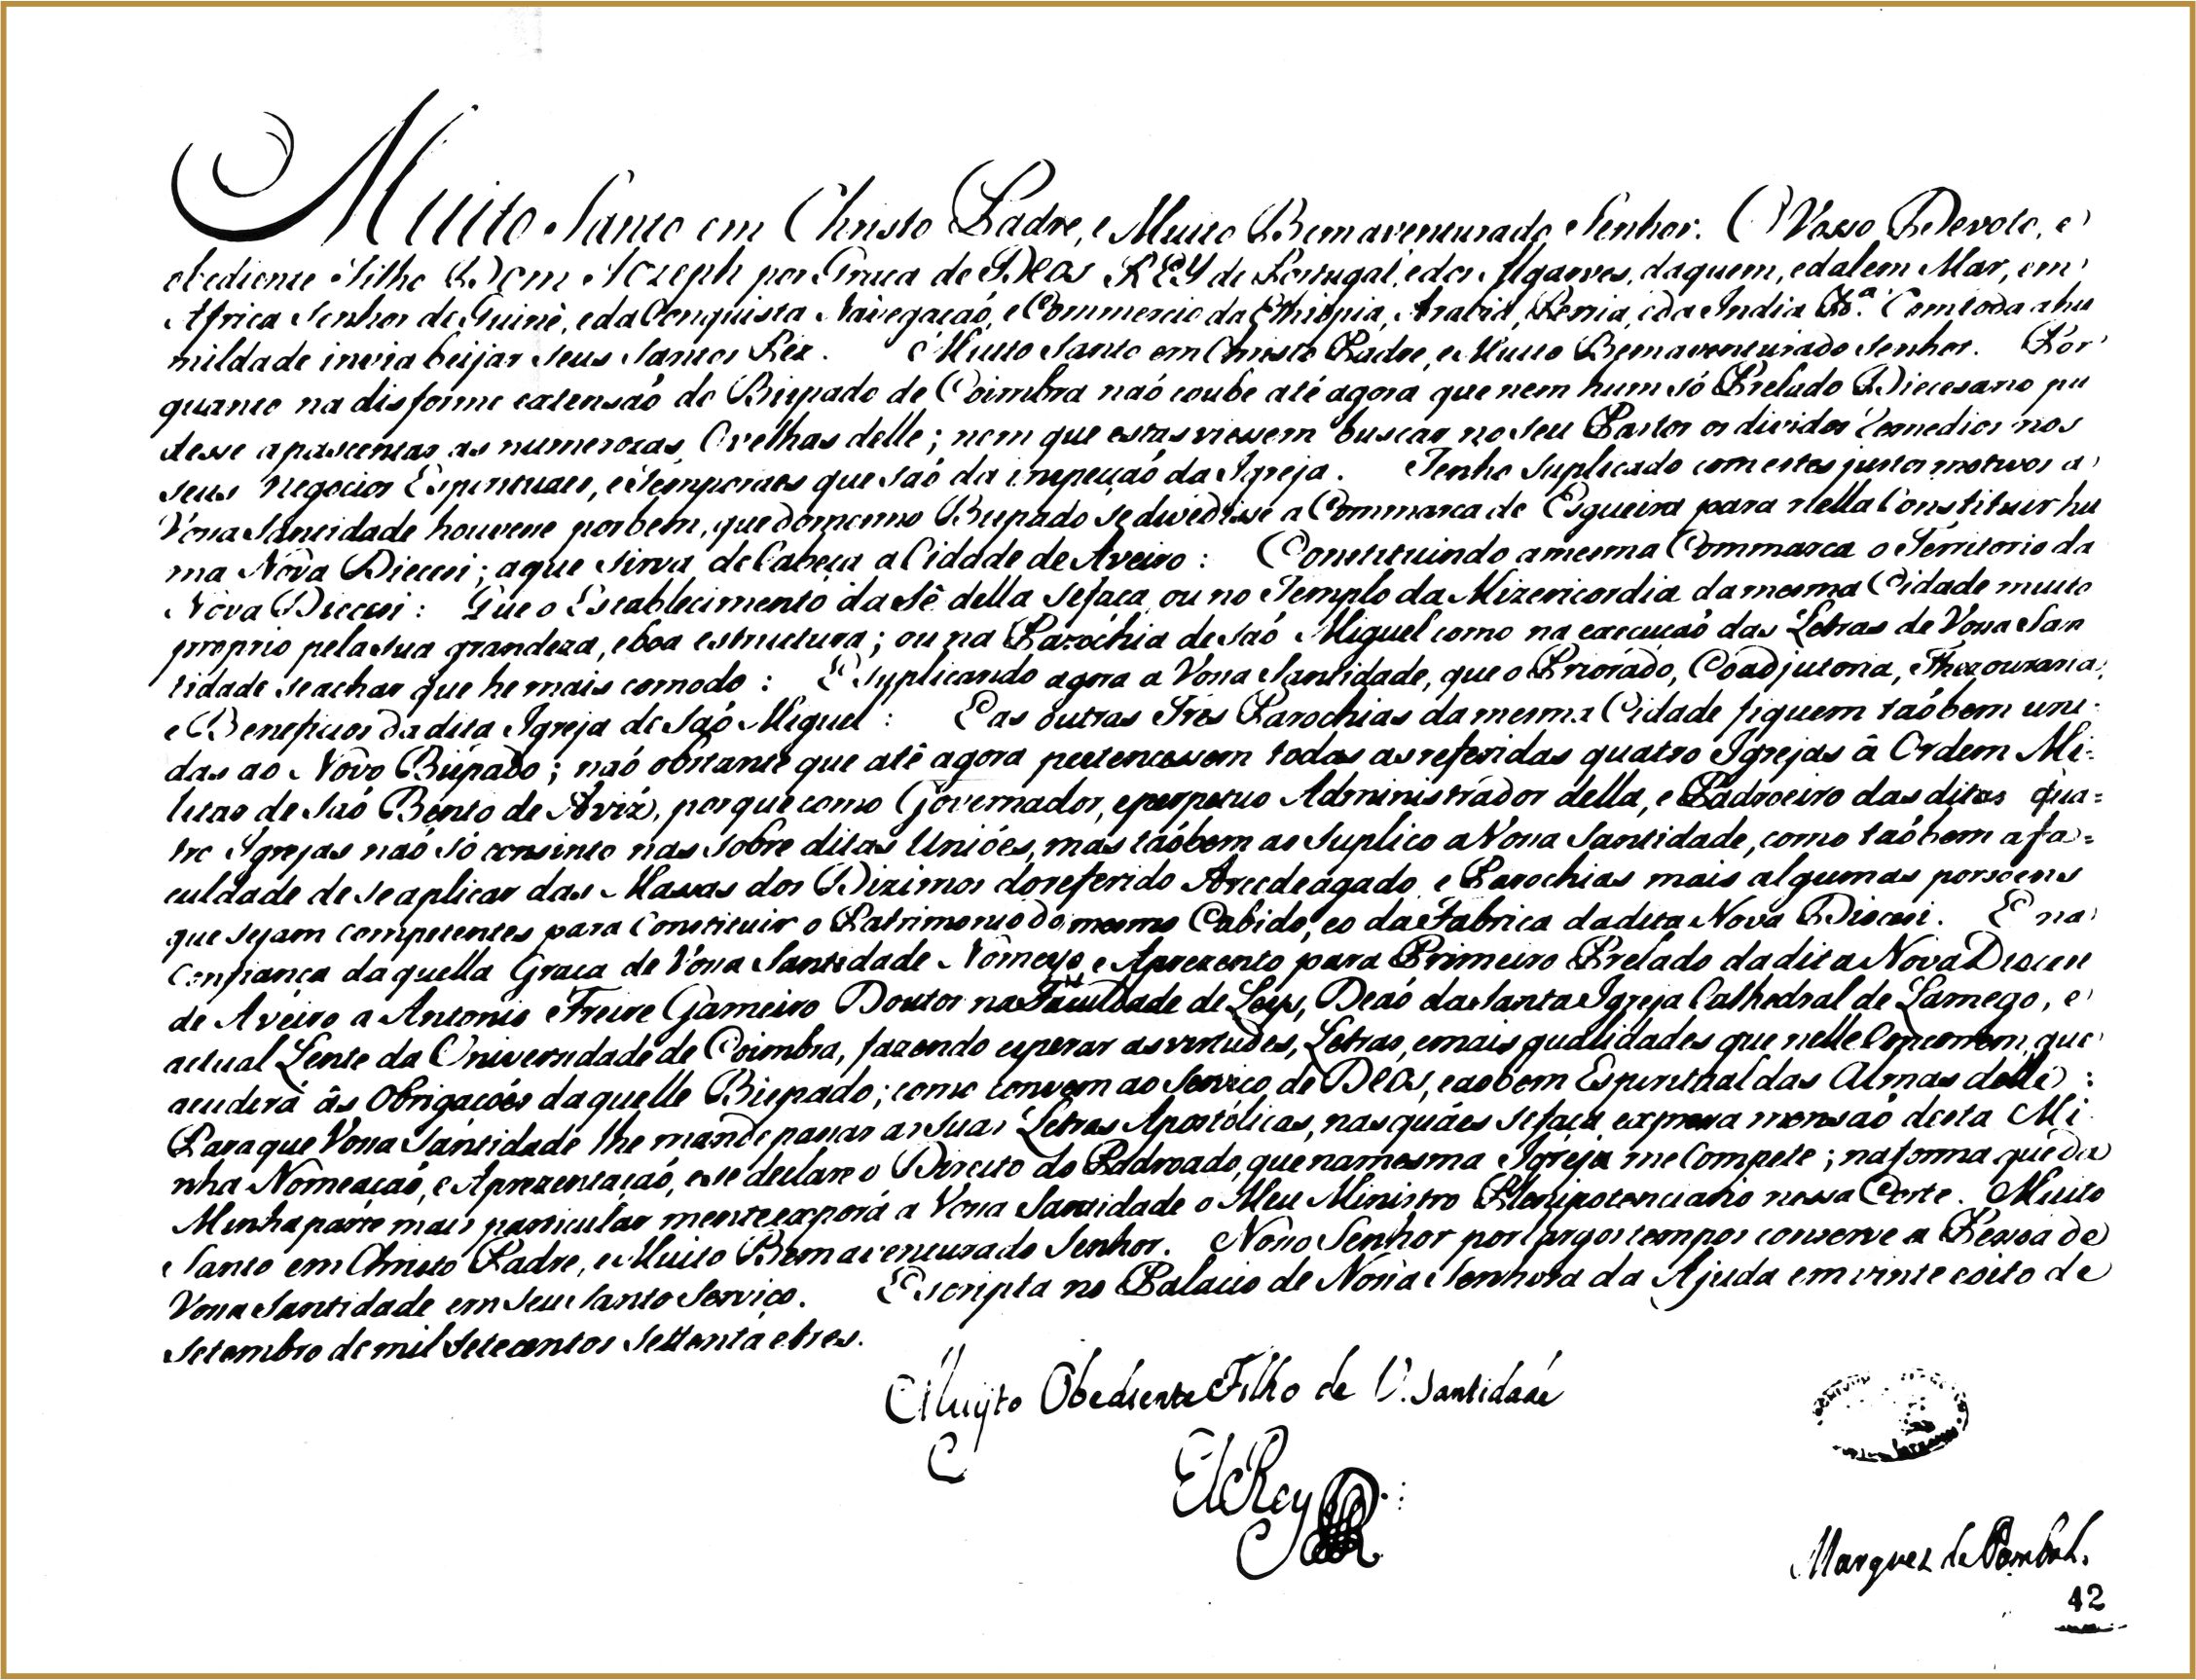 Muito Santo em Christo Padre, e Muito Bemaventurado Senhor. O Vosso Devoto, e
obediente Filho Dom Jozeph por Graca de DEOS REY de Portugal, e dos Algarves, daquem, e dalem Mar, em
Africa Senhor de Guiné, e da Conquista Navegaçaó, e Commercio da Ethiopia, Arabia, Persia, e da India &.ª Com toda a hu
mildade invia beijar seus Santos Pez. Muito Santo em Christo Padre, e Muito Bemaventurado Senhor. Por
quanto na disforme extensaó do Bispado de Coimbra naó coube até agora que nem hum só Prelado Diocesano pu
desse apascentar as numerozas Ovelhas delle; nem que estas viessem buscar no seu Pastor os dividos remedios nos
seus negocios Espirituaes, e Temporaes que saó da inspecçaó da Igreja. Tenho Suplicado com estes justos motivos a
Vossa Santidade houvesse por bem, que do mesmo Bispado se dividisse a Commarca de Esgueira para nella Constituir hu
ma Nova Diecesi; a que sirva de Cabeça a Cidade de Aveiro: Constituindo a mesma Commarca o Territorio da
Nova Diecesi: Que o Establecimento da Sé della se faca, ou no Templo da Mizericordia da mesma Cidade muito
proprio pela sua grandeza, e boa estructura; ou na Paróchia de Saó Miguel como na execuçaó das Letras de Vossa San
tidade se achar que he mais comodo: E Suplicando agora a Vossa Santidade, que o Priorado, Coadjutoria, Thezouraria,
e Beneficios da dita Igreja de Saó Miguel: E as outras Tres Parochias da mesma Cidade fiquem taóbem uni-
das ao Novo Bispado; naó obstante que até agora pertencessem todas as referidas quatro Igrejas â Ordem Mi-
litar de Saó Bento de Aviz, porque como Governador, e perpetuo Administrador della, e Padroeiro das ditas Qua=
tro Igrejas naó só consinto nas sobre ditas Unióes, mas taóbem as suplico a Vossa Santidade, como taóbem a fa=
culdade de se aplicar das Massas dos Dizimos do referido Arcedeagado, e Parochias mais algumas porsoens
que sejam competentes para Constituir o Patrimonio do mesmo Cabido, e o da Fabrica da dita Nova Diocesi. E na
Confiança daquella Graca de Vossa Santidade Nomeyo, e Aprezento para Primeiro Prelado da dita Nova Diecesi
de Aveiro a Antonio Freire Gameiro Doutor na Faculdade de Leys, Deaó da Santa Igreja Cathedral de Lamego, e
actual Lente da Universidade de Coimbra, fazendo esperar as virtudes, Letras, e mais qualidades que nelle Concorrem, que
acudirá âs Obrigacóes daquelle Bispado; como convem ao Servico de DEOS, e ao bem Espiritual das Almas delle:
Para que Vossa Santidade lhe mande passar as suas Letras Apostólicas, nas quáes se faça expressa mensaó desta Mi
nha Nomeaçaó, e Aprezentaçaó, e se declare o Direito do Padroado, que na mesma Igreja me Compete; na forma que da
Minha parte mais particular mente exporá a Vossa Santidade o Meu Ministro Plenipotenciario nessa Corte. Muito
Santo em Christo Padre, e Muito Bemaventurado Senhor. Nosso Senhor por largos tempos conserve a Pessoa de
Vossa Santidade em Seu Santo Serviço. Escripta no Palacio de Nossa Senhora da Ajuda em vinte e oito de
Setembro de mil setecentos settenta e tres.
Muyto Obediente Filho de V. Santidade
El Rey
Marquez de Pombal.
42